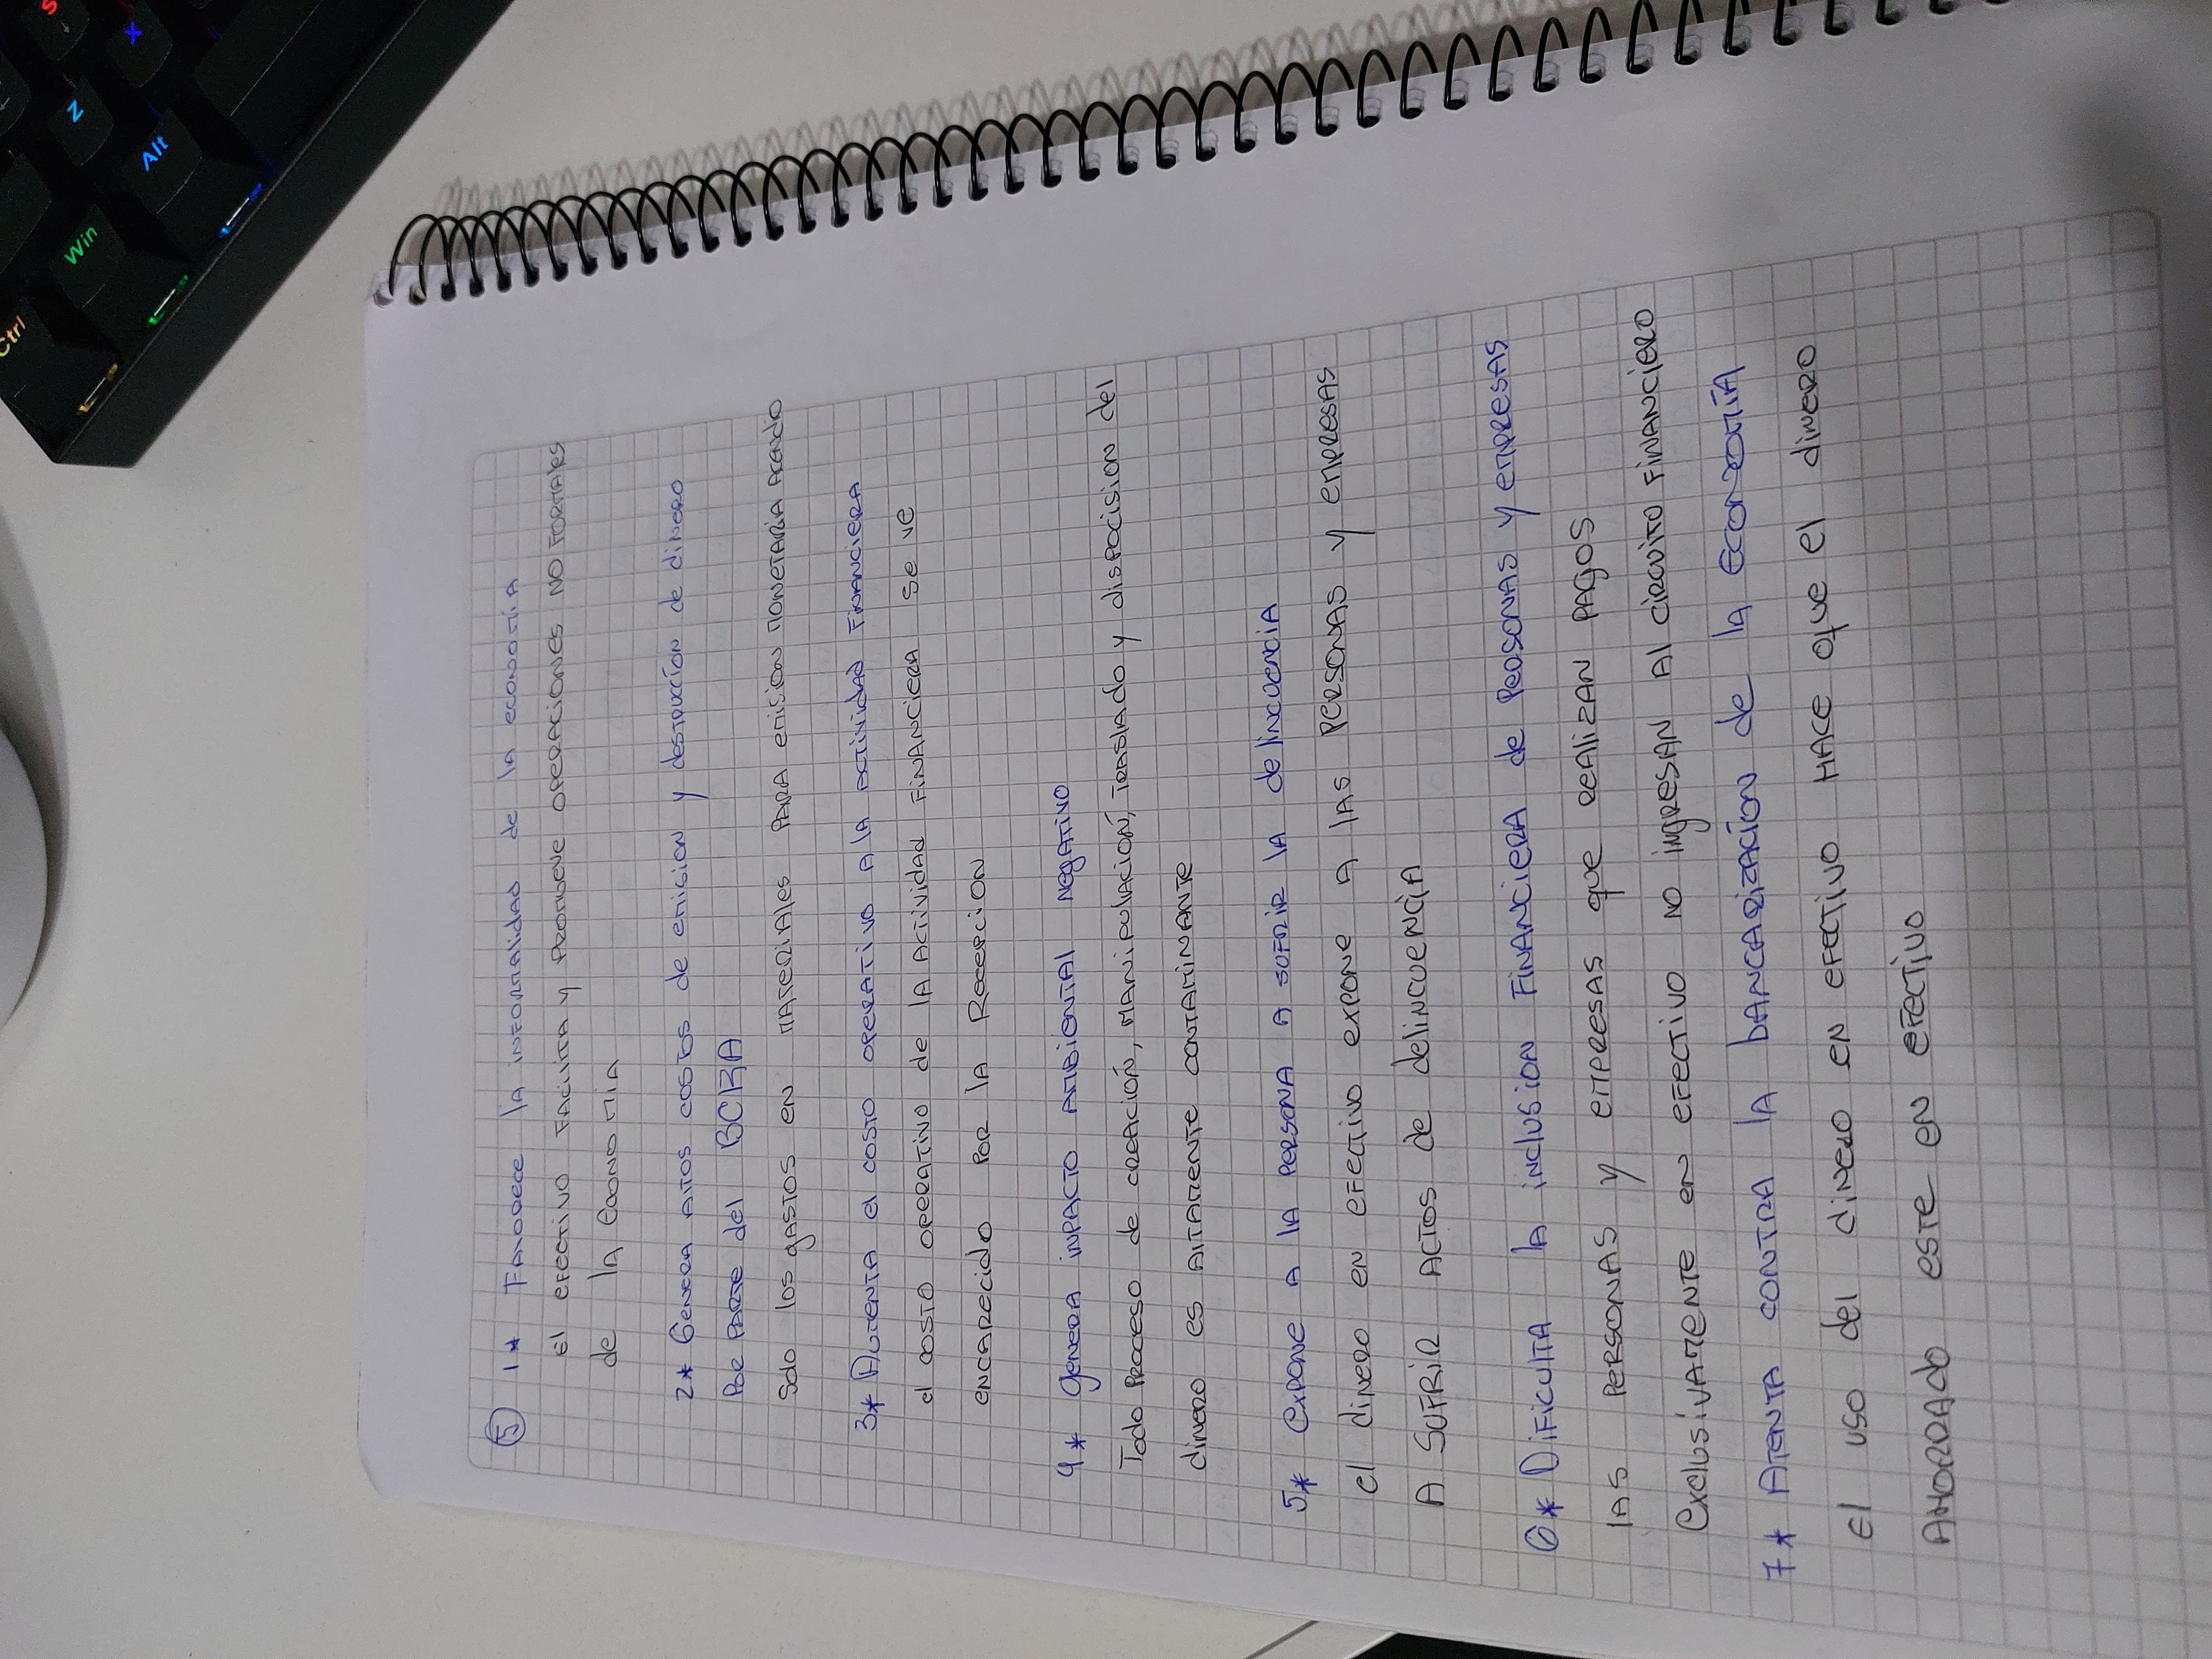 S
X
Z
Alt
Win
Ctrl
5 1* Favorece la informalidad de la economia
El efectivo facilita y promueve operaciones no formales
de la economia
2* Genera altos costos de emision y destrucción de dinero
Por parte del BCRA
Solo los gastos en materiales para emision monetaria
3* Aumenta el costo operativo a la actividad financiera
el costo operativo de la actividad financiera se ve
encarecido por la Recepcion
4* genera inpacto ambiental negativo
Todo proceso de creación, manipulación, traslado y disposcision del
dinero es altamente contaminante
5* Expone a la persona a sufrir la delincuencia
el dinero en efectivo expone a las personas y empresas
A sufrir actos de delincuencia
6* Dificulta la inclusion financiera de personas y empresas
las personas y empresas que realizan pagos
Exclusivamente en efectivo no ingresan al circuito financiero
7* Atenta contra la bancarización de la economía
El uso del dinero en efectivo hace que el dinero
Ahorrado este en efectivo